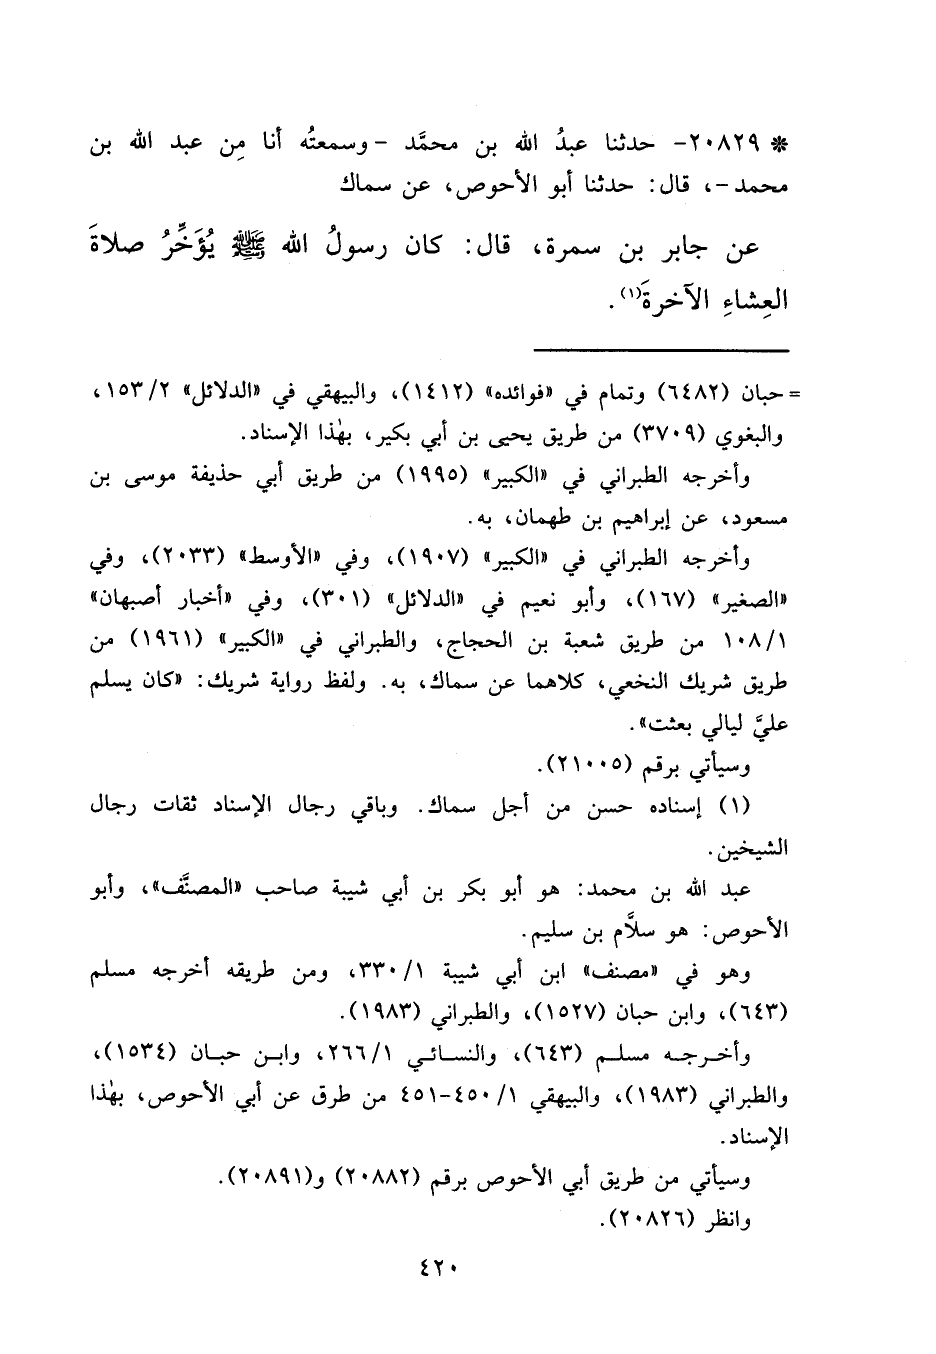 * ٢٠٨٢٩- حدثنا عبدُ الله بن محمَّد -وسمعتُه أنا مِن عبد الله بن
محمد-، قال: حدثنا أبو الأحوص، عن سماك
عن جابر بن سمرة، قال: كان رسولُ الله ﷺ يُؤَخِّرُ صلاةَ
العِشاءِ الآخرةَ(١).
= حبان (٦٤٨٢) وتمام في «فوائده» (١٤١٢)، والبيهقي في «الدلائل» ١٥٣/٢،
والبغوي (٣٧٠٩) من طريق يحيى بن أبي بكير، بهٰذا الإسناد.
وأخرجه الطبراني في «الكبير» (١٩٩٥) من طريق أبي حذيفة موسى بن
مسعود، عن إبراهيم بن طهمان، به.
وأخرجه الطبراني في «الكبير» (١٩٠٧)، وفي «الأوسط» (٢٠٣٣)، وفي
«الصغير» (١٦٧)، وأبو نعيم في «الدلائل» (٣٠١)، وفي «أخبار أصبهان»
١٠٨/١ من طريق شعبة بن الحجاج، والطبراني في «الكبير» (١٩٦١) من
طريق شريك النخعي، كلاهما عن سماك، به. ولفظ رواية شريك: «كان يسلم
عليَّ ليالي بعثت».
وسيأتي برقم (٢١٠٠٥).
(١) إسناده حسن من أجل سماك. وباقي رجال الإسناد ثقات رجال
الشيخين.
عبد الله بن محمد: هو أبو بكر بن أبي شيبة صاحب «المصنَّف»، وأبو
الأحوص: هو سلَّام بن سليم.
وهو في «مصنف» ابن أبي شيبة ٣٣٠/١، ومن طريقه أخرجه مسلم
(٦٤٣)، وابن حبان (١٥٢٧)، والطبراني (١٩٨٣).
وأخرجه مسلم (٦٤٣)، والنسائي ٢٦٦/١، وابن حبان (١٥٣٤)،
والطبراني (١٩٨٣)، والبيهقي ٤٥٠/١-٤٥١ من طرق عن أبي الأحوص، بهٰذا
الإسناد.
وسيأتي من طريق أبي الأحوص برقم (٢٠٨٨٢) و(٢٠٨٩١).
وانظر (٢٠٨٢٦).
٤٢٠